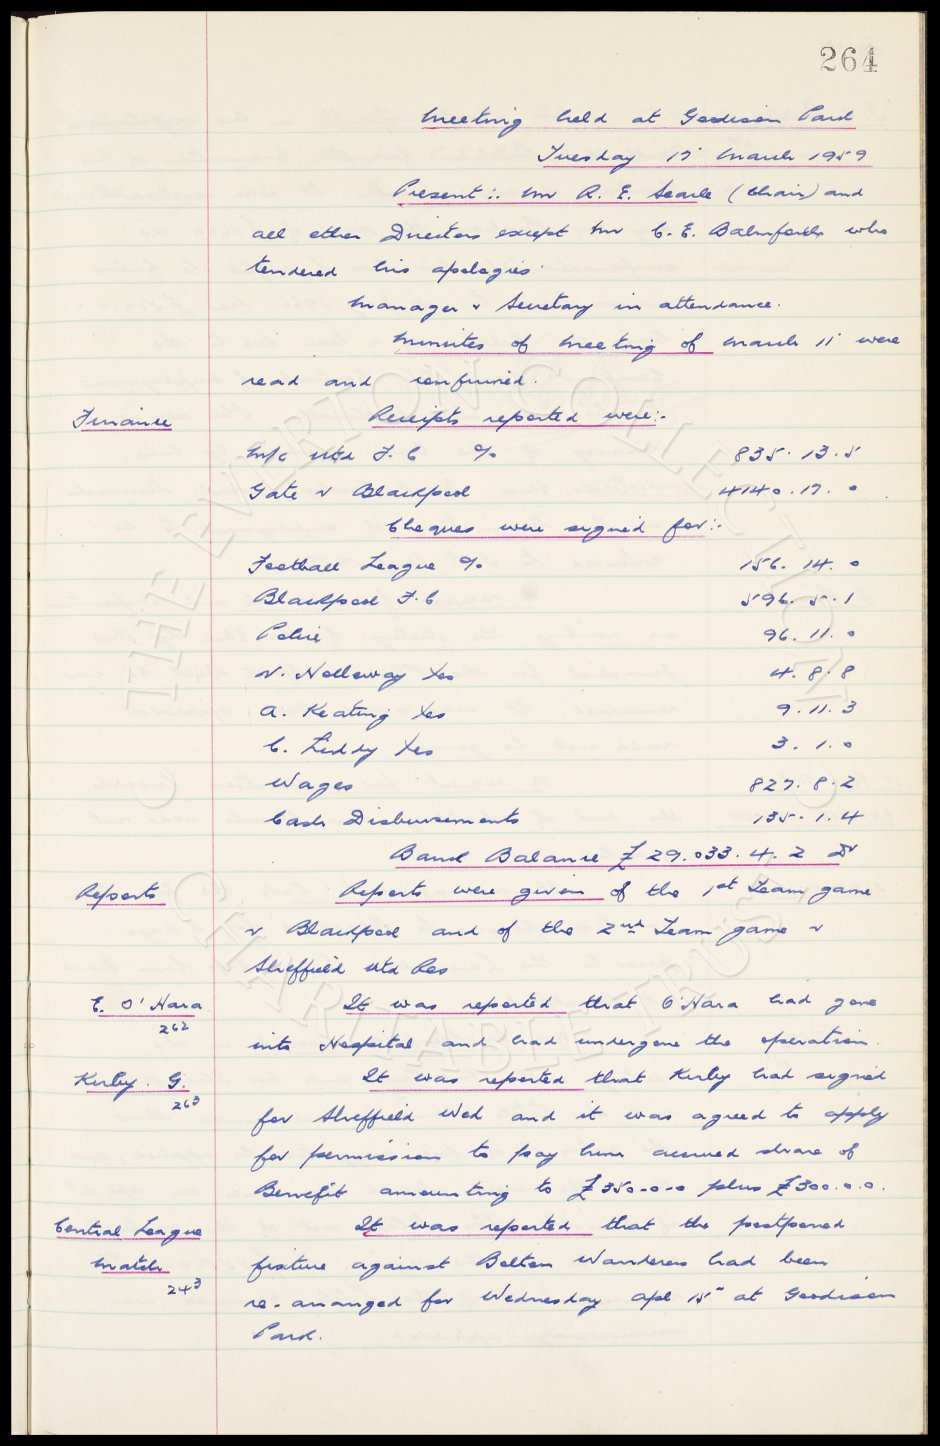 264
Meeting held at Goodison Park
Tuesday 17" March 1959
Present:. Mr R. E. Searle (Chair) and
all other Directors except Mr C. E. Balmforth who
tendered his apologies.
Manager & Secretary in attendance.
Minutes of Meeting of March 11" were
read and confirmed.
Finance Receipts reported were:-
M/c Utd F. C % 835. 13. 5
Gate v Blackpool 4140. 17. 0
Cheques were signed for:-
Football League % 156. 14. 0
Blackpool F. C 596. 5. 1
Police 96. 11. 0
N. Holloway Yes 4. 8. 8
A. Keating Yes 9. 11. 3
C. Liddy Yes 3. 1. 0
Wages 827. 8. 2
Cash Disbursements 135. 1. 4
Bank Balance £ 29.033. 4. 2 Dr
Reports Reports were given of the 1st Team game
v Blackpool and of the 2nd Team game v
Sheffield Utd Res
E. O'Hara It was reported that O'Hara had gone
262
into Hospital and had undergone the operation.
Kirby. G. It was reported that Kirby had signed
263
for Sheffield Wed and it was agreed to apply
for permission to pay him accrued share of
Benefit amounting to £350.0.0 plus £300.0.0.
Central League It was reported that the postponed
Match fixture against Bolton Wanderers had been
243
re-arranged for Wednesday Apl 15" at Goodison
Park.
THE EVERTON COLLECTION
CHARITABLE TRUST